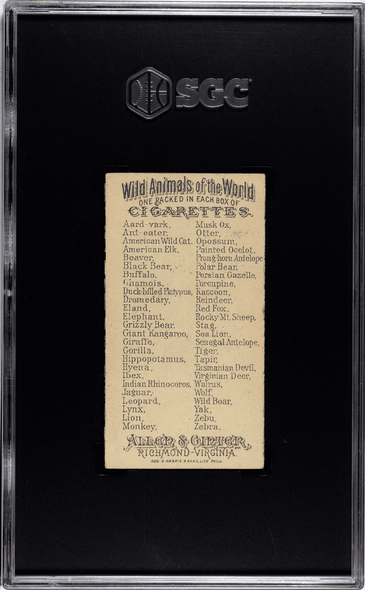 SGC
Wild Animals of the World
ONE PACKED IN EACH BOX OF
CIGARETTES.
Aard-vark, Musk Ox,
Ant-eater, Otter,
American Wild Cat, Opossum,
American Elk, Painted Ocelot,
Beaver, Pronghorn Antelope
Black Bear, Polar Bear,
Buffalo, Persian Gazelle,
Chamois, Porcupine,
Duck-billed Platypus, Raccoon,
Dromedary, Reindeer,
Eland, Red Fox,
Elephant, Rocky Mt. Sheep,
Grizzly Bear, Stag,
Giant Kangaroo, Sea Lion,
Giraffe, Senegal Antelope,
Gorilla, Tiger,
Hippopotamus, Tapir,
Hyena, Tasmanian Devil,
Ibex, Virginian Deer,
Indian Rhinoceros, Walrus,
Jaguar, Wolf,
Leopard, Wild Boar,
Lynx, Yak,
Lion, Zebu,
Monkey, Zebra.
ALLEN & GINTER,
RICHMOND-VIRGINIA.
GEO. S. HARRIS & SONS, LITH. PHILA.